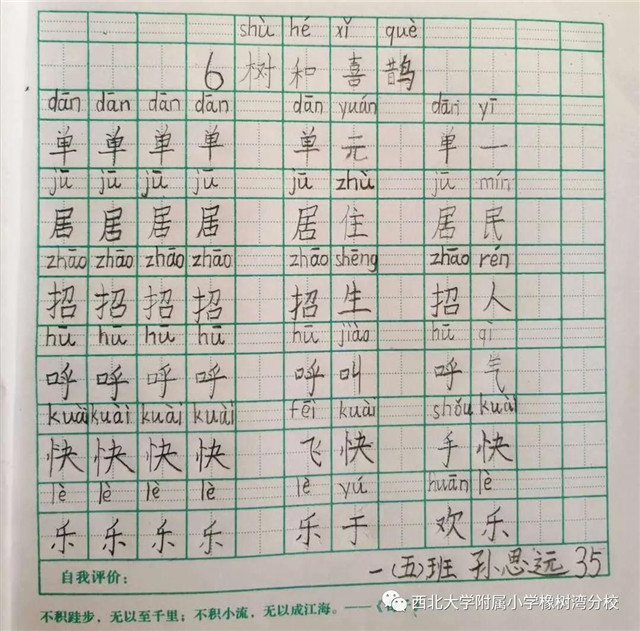 shù hé xǐ què
6 树 和 喜 鹊
dān dān dān dān dān yuán dān yī
单 单 单 单 单 元 单 一
jū jū jū jū jū zhù jū mín
居 居 居 居 居 住 居 民
zhāo zhāo zhāo zhāo zhāo shēng zhāo rén
招 招 招 招 招 生 招 人
hū hū hū hū hū jiào hū qì
呼 呼 呼 呼 呼 叫 呼 气
kuài kuài kuài kuài fēi kuài shǒu kuài
快 快 快 快 飞 快 手 快
lè lè lè lè lè yú huān lè
乐 乐 乐 乐 乐 于 欢 乐
自我评价：
一(五)班 孙思远 35
不积跬步，无以至千里；不积小流，无以成江海。——《
西北大学附属小学橡树湾分校